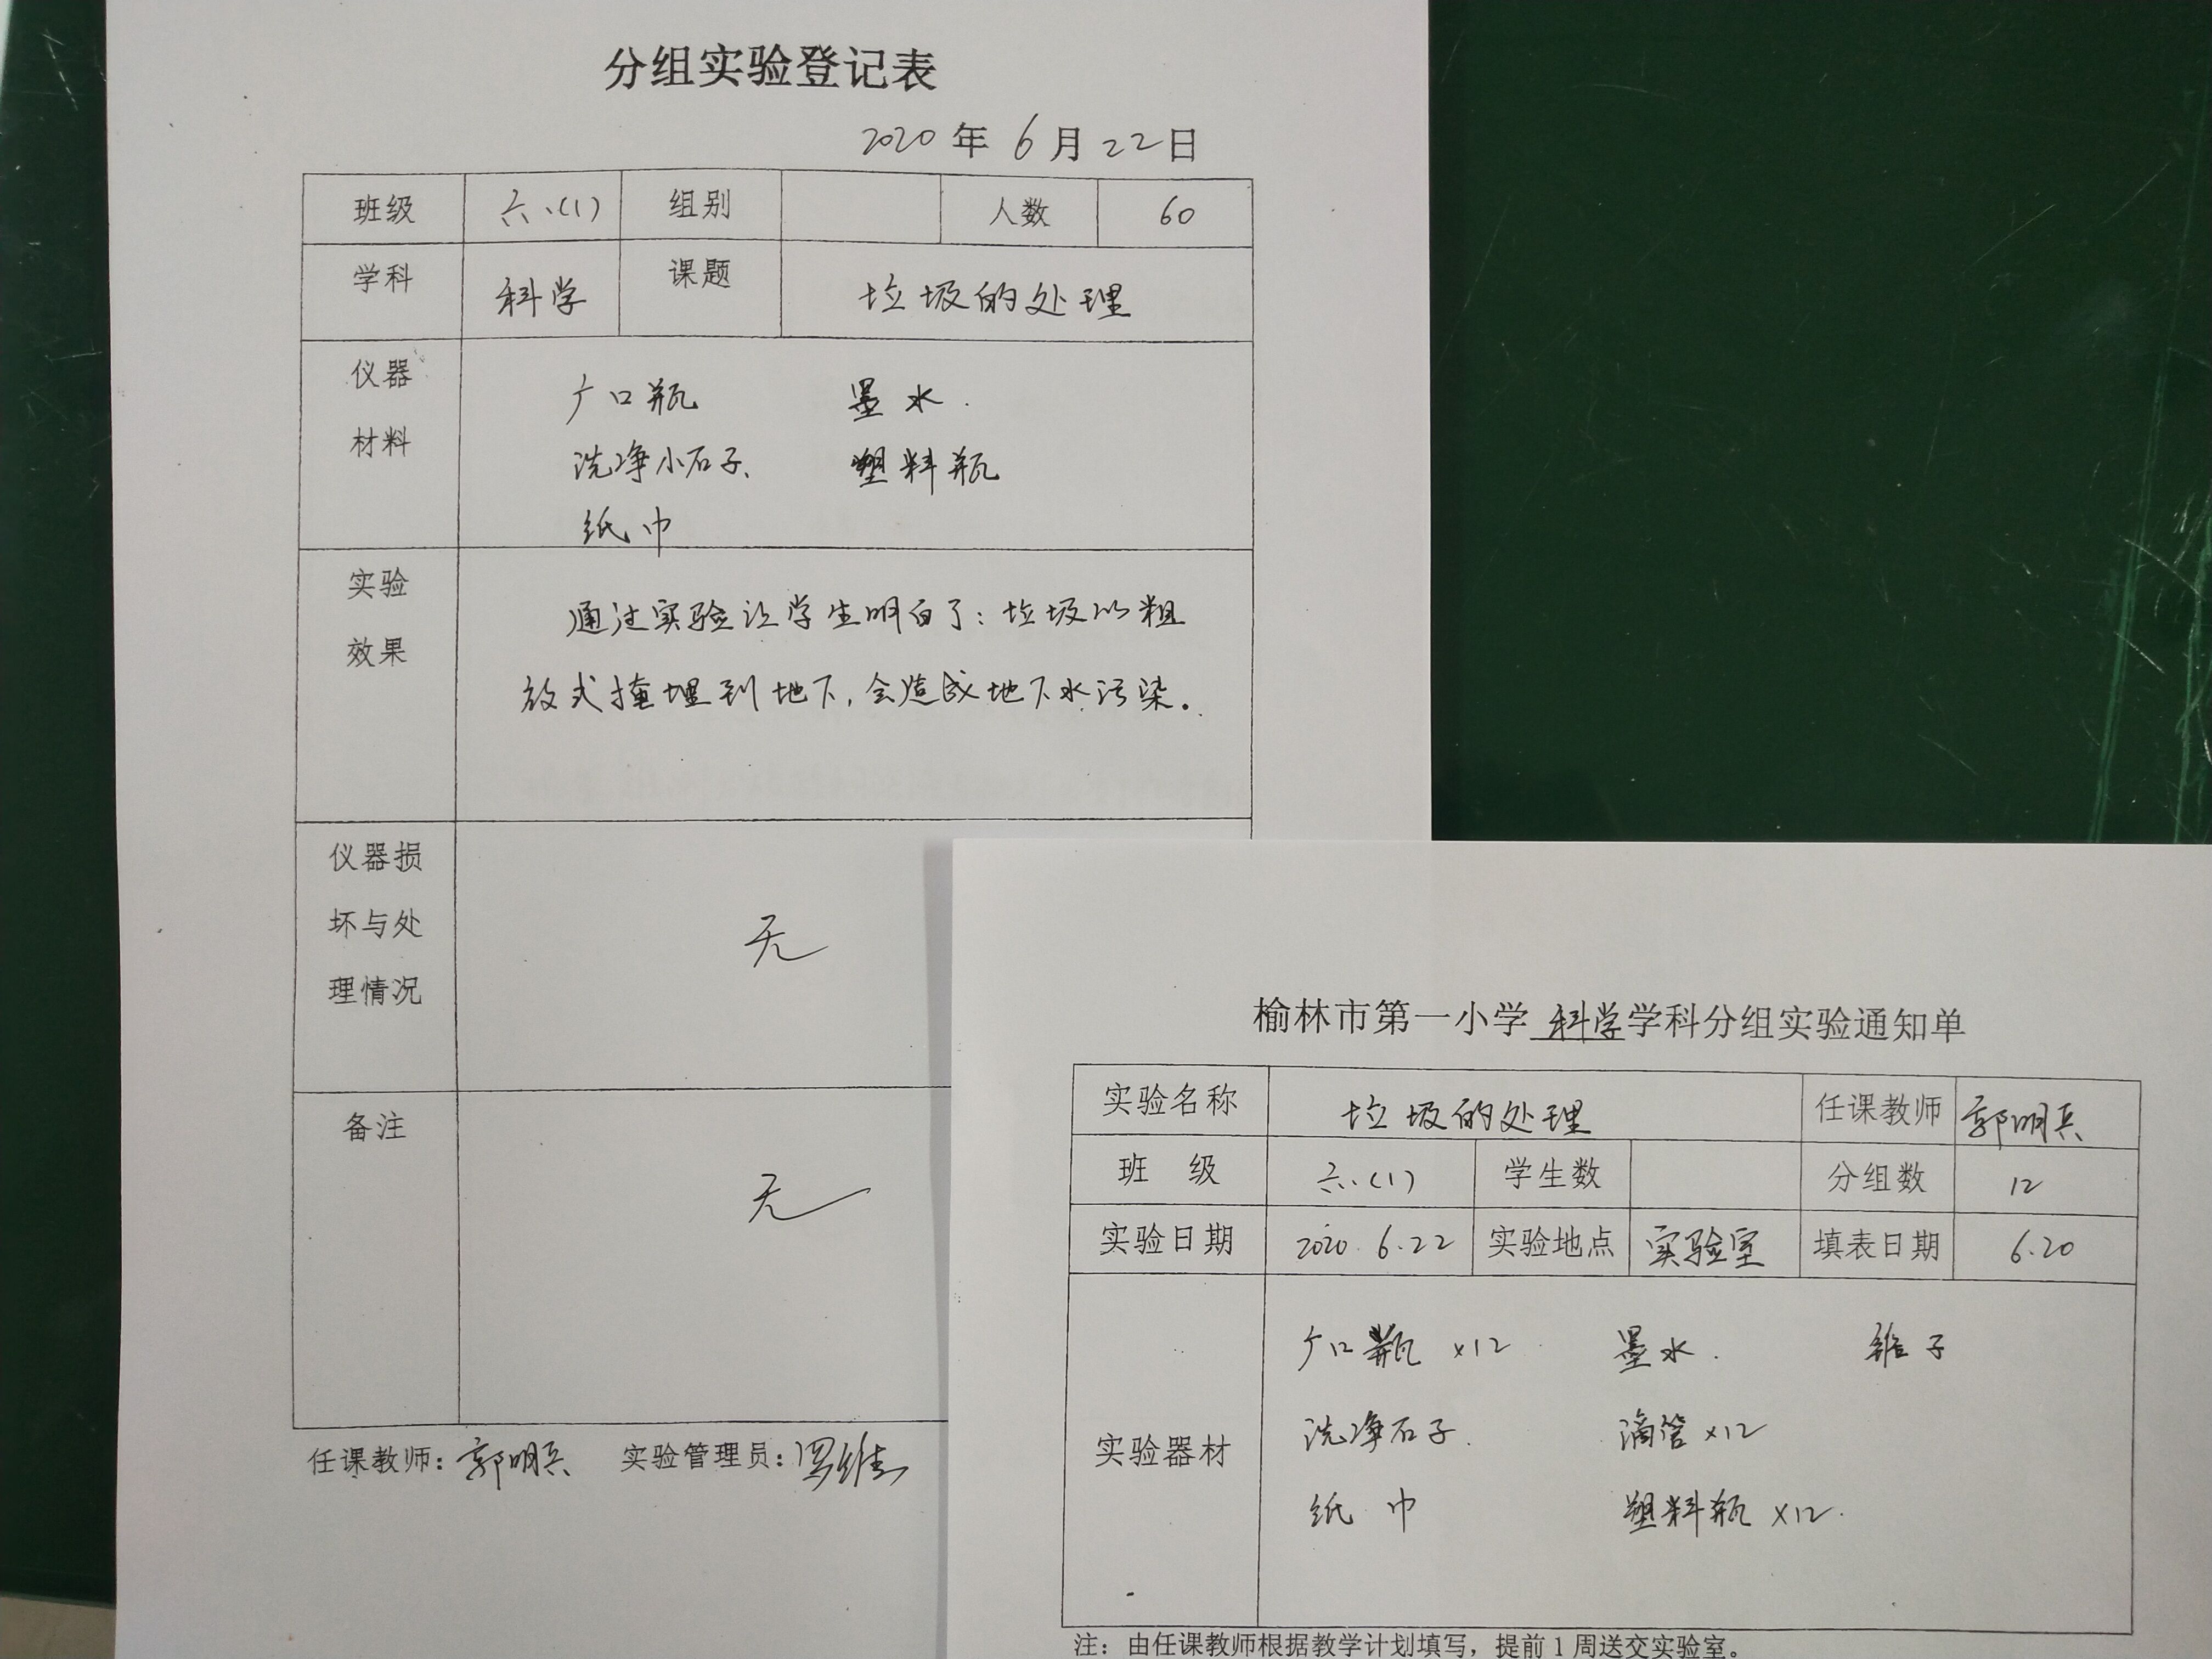 分组实验登记表
2020年6月22日
班级 六.(1) 组别 人数 60
学科 科学 课题 垃圾的处理
仪器材料
广口瓶 墨水.
洗净小石子、 塑料瓶
纸巾
实验效果
通过实验让学生明白了：垃圾以粗
放式掩埋到地下，会造成地下水污染。
仪器损坏与处理情况
无
备注
无
任课教师：郭明兵 实验管理员：罗维
榆林市第一小学科学学科分组实验通知单
实验名称 垃圾的处理 任课教师 郭明兵
班级 六.(1) 学生数 分组数 12
实验日期 2020.6.22 实验地点 实验室 填表日期 6.20
实验器材
广口瓶 ×12 墨水. 子
洗净石子. 滴管×12
纸巾 塑料瓶×12.
注：由任课教师根据教学计划填写，提前1周送交实验室。